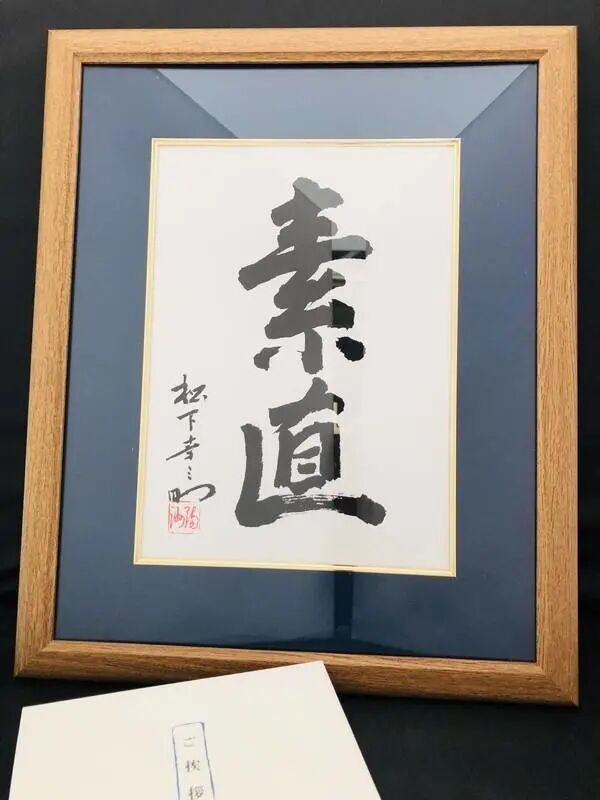 素直
松下幸之助
ご挨拶